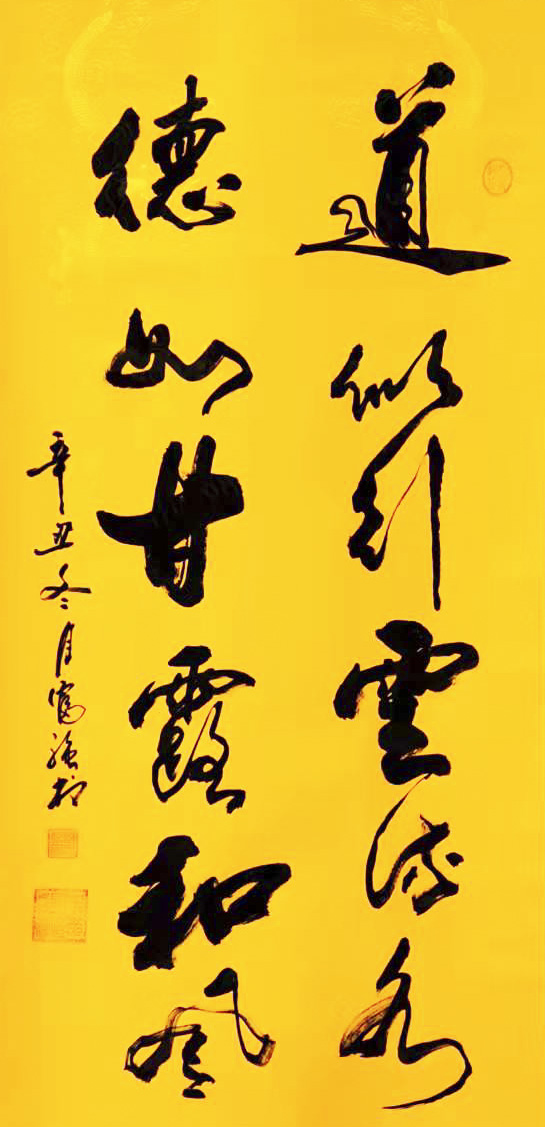 道似行雲流水
德如甘露和風
辛丑冬月富強